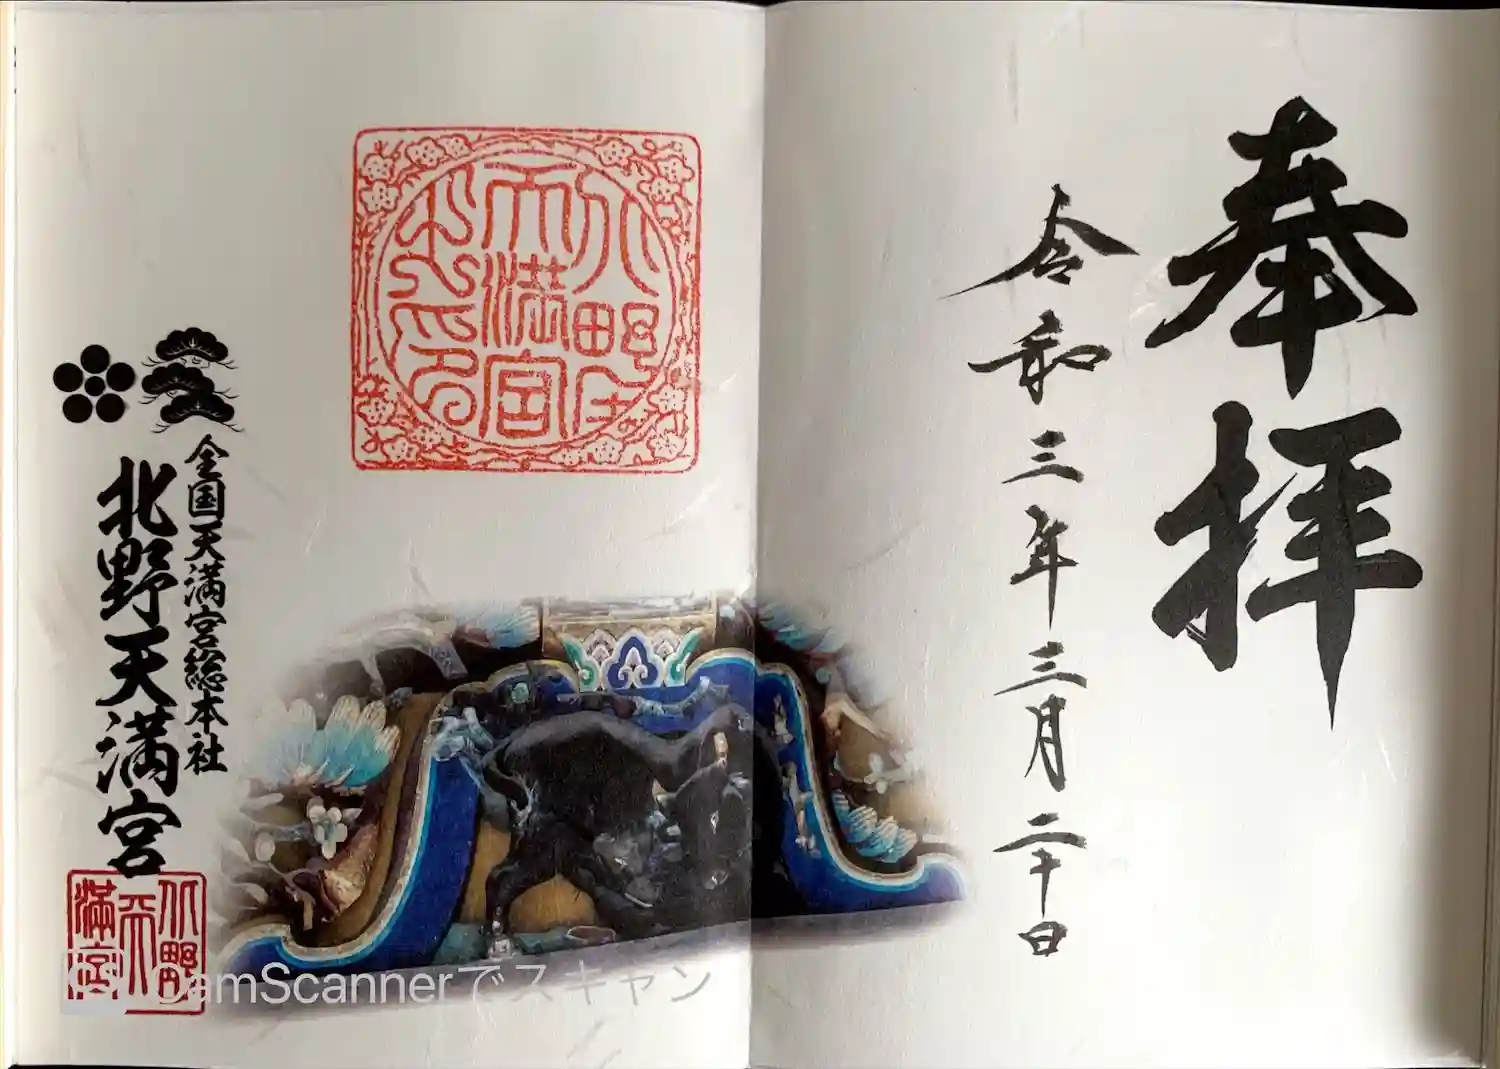 奉拝
令和三年三月二十日
北野
天満宮
全国天満宮総本社
北野天満宮
北野
天
満宮
CS CamScannerでスキャン